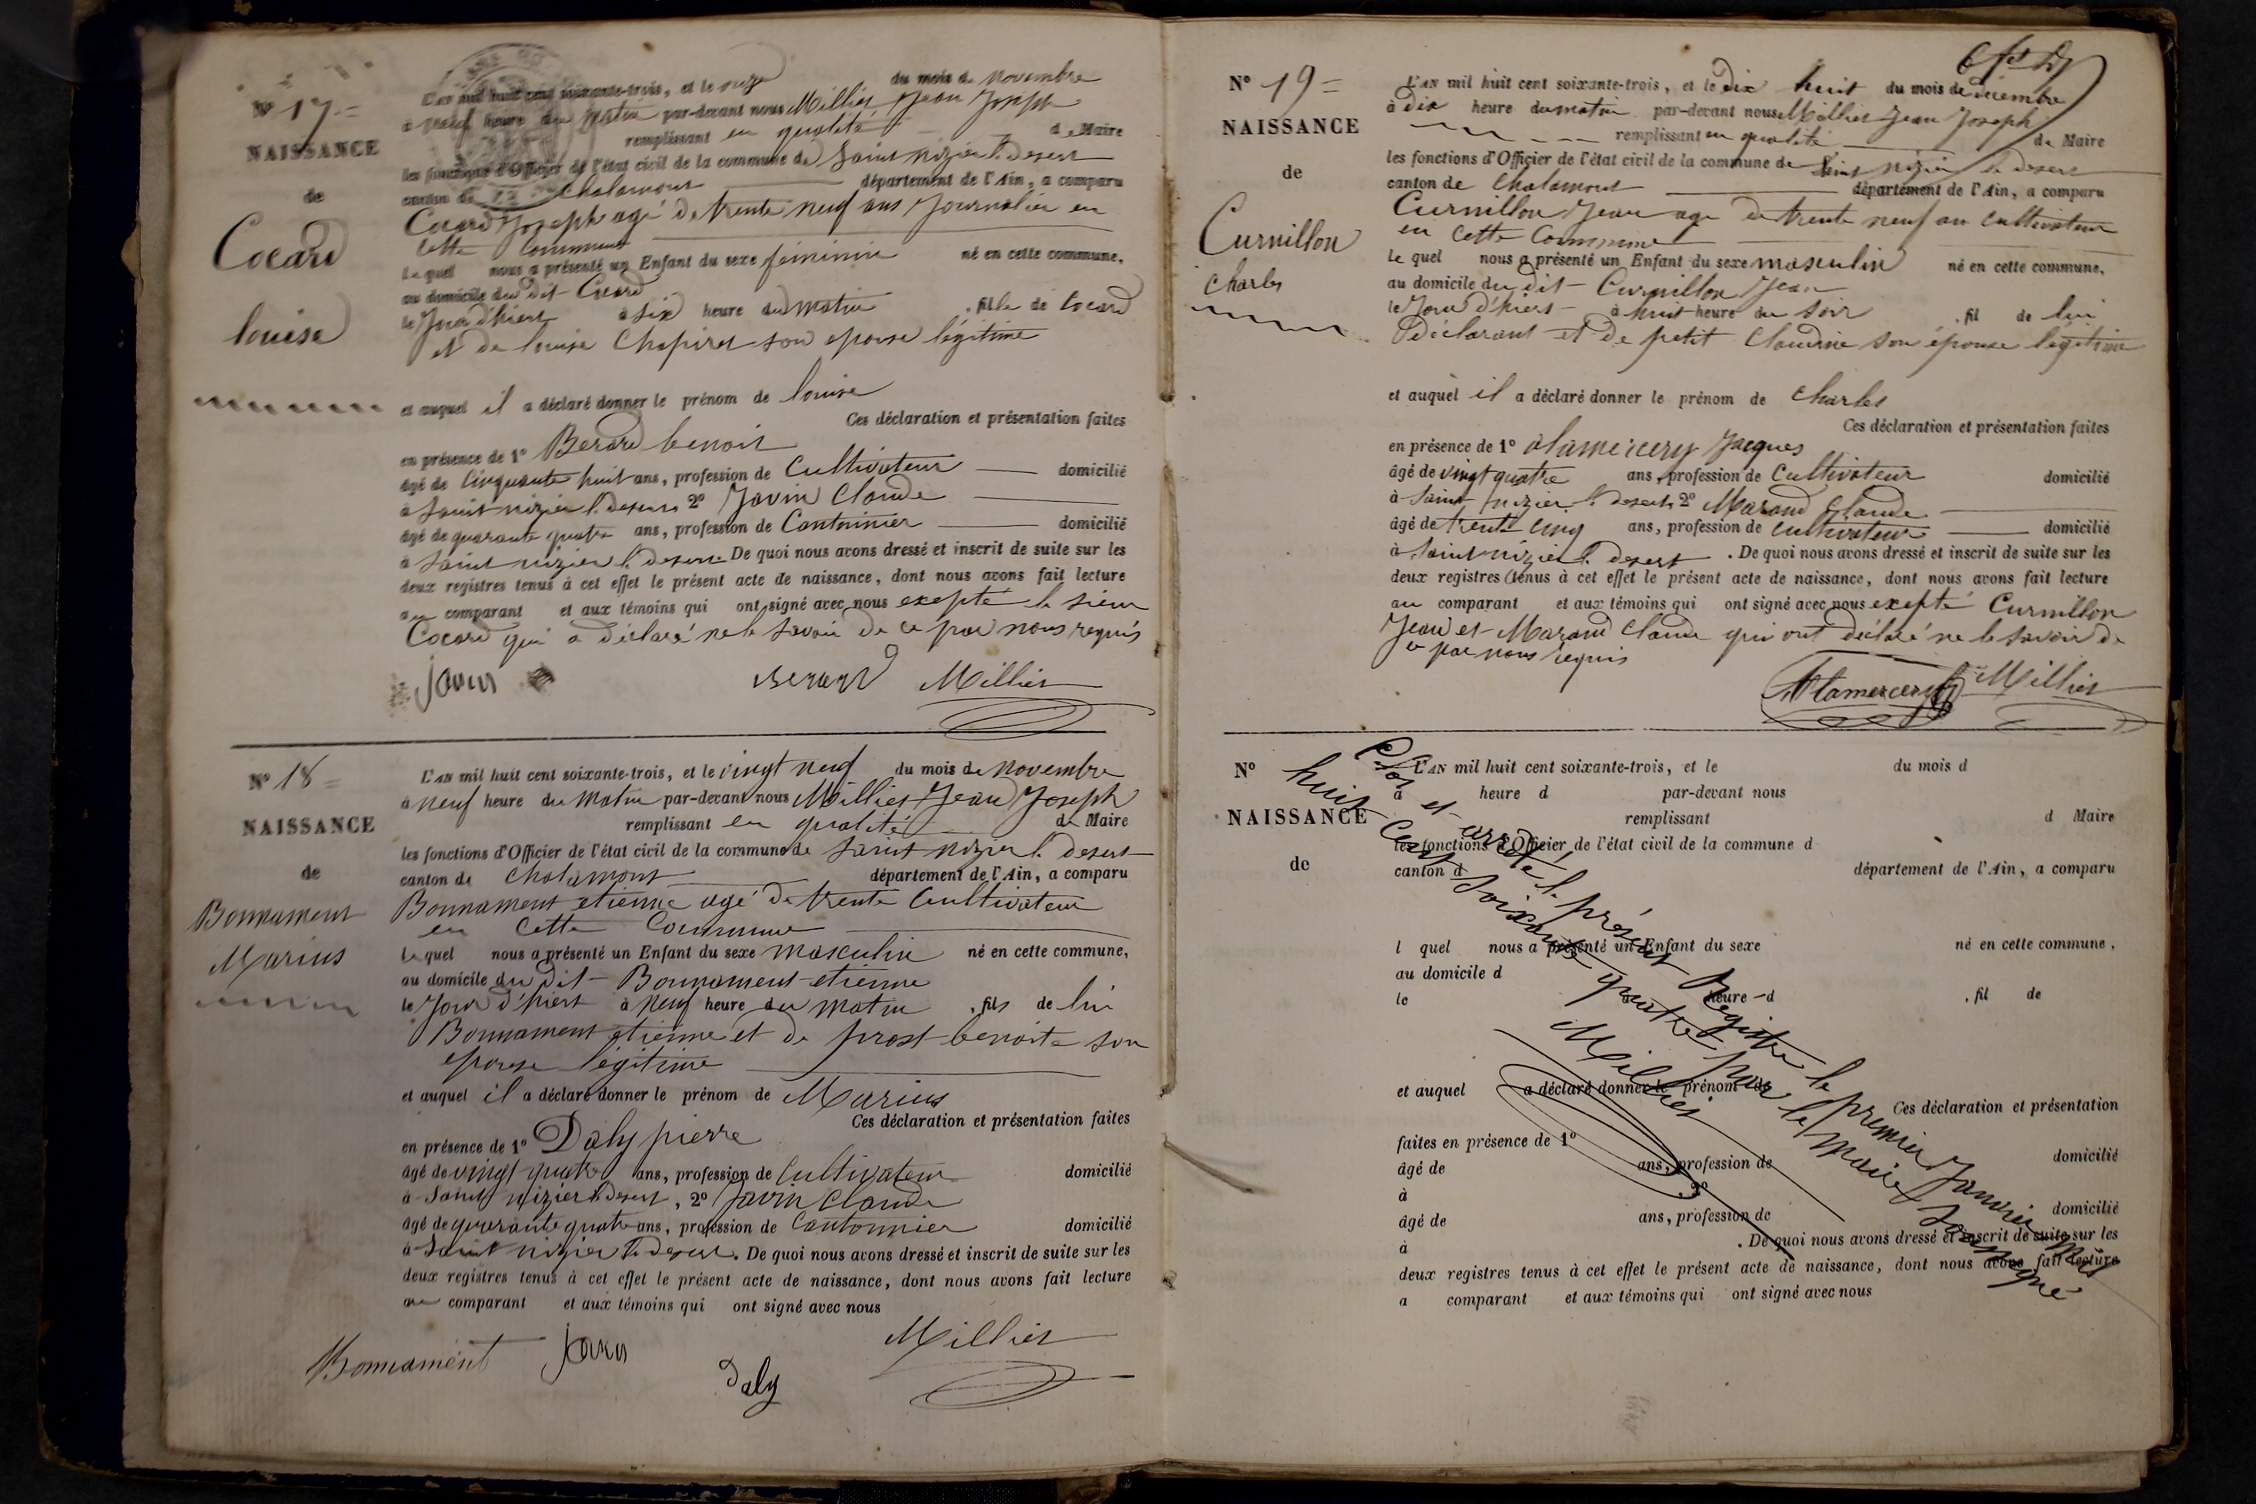 N° 17 =
NAISSANCE
de
Cocard
louise
L'AN mil huit cent soixante-trois, et le onze du mois de novembre
à neuf heure du matin par-devant nous Millier Jean Joseph
remplissant en qualité de Maire
les fonctions d'Officier de l'état civil de la commune de Saint nizier le desert
canton de Chalamont département de l'Ain, a comparu
Cocard Joseph agé de trente neuf ans Journalier en
cette commune
Le quel nous a présenté un Enfant du sexe féminin né en cette commune,
au domicile du dit Cocard
le Jour d'hiert à six heure du matin , fille de Cocard
et de louise Chapiret son epouse légitime
et auquel il a déclaré donner le prénom de louise
Ces déclaration et présentation faites
en présence de 1° Berard benoit
âgé de Cinquante huit ans, profession de Cultivateur domicilié
à Saint nizier le desert 2° Javin Claude
âgé de quarante quatre ans, profession de Cantonnier domicilié
à Saint nizier le desert De quoi nous avons dressé et inscrit de suite sur les
deux registres tenus à cet effet le présent acte de naissance, dont nous avons fait lecture
au comparant et aux témoins qui ont signé avec nous exepté le sieur
Cocard qui a déclaré ne le savoir de ce par nous requis
Javin Berard Millier
N° 18 =
NAISSANCE
de
Bonnament
Marius
L'AN mil huit cent soixante-trois, et le vingt neuf du mois de novembre
à neuf heure du matin par-devant nous Millier Jean Joseph
remplissant en qualité de Maire
les fonctions d'Officier de l'état civil de la commune de Saint nizier le desert
canton de Chalamont département de l'Ain, a comparu
Bonnament etienne agé de trente Cultivateur
en cette Commune
Le quel nous a présenté un Enfant du sexe masculin né en cette commune,
au domicile du dit Bonnament etienne
le Jour d'hiert à neuf heure du matin , fils de lui
Bonnament etienne et de prost benoite son
epouse légitime
et auquel il a déclaré donner le prénom de Marius
Ces déclaration et présentation faites
en présence de 1° Daly pierre
âgé de vingt quatre ans, profession de Cultivateur domicilié
à Saint nizier le desert , 2° Javin Claude
âgé de quarante quatre ans, profession de Cantonnier domicilié
à Saint nizier le desert . De quoi nous avons dressé et inscrit de suite sur les
deux registres tenus à cet effet le présent acte de naissance, dont nous avons fait lecture
au comparant et aux témoins qui ont signé avec nous
Bonnament Javin Daly Millier
N° 19 =
NAISSANCE
de
Curnillon
Charles
L'AN mil huit cent soixante-trois, et le dix huit du mois de decembre
à dix heure du matin par-devant nous Millier Jean Joseph
remplissant en qualité de Maire
les fonctions d'Officier de l'état civil de la commune de Saint nizier le desert
canton de Chalamont département de l'Ain, a comparu
Curnillon Jean agé de trente neuf an cultivateur
en cette Commune
Le quel nous a présenté un Enfant du sexe masculin né en cette commune,
au domicile du dit Curnillon Jean
le Jour d'hiert à huit heure du soir , fil de lui
déclarant et de petit Claudine son épouse légitime
et auquel il a déclaré donner le prénom de Charles
Ces déclaration et présentation faites
en présence de 1° alamercery Jacques
âgé de vingt quatre ans, profession de Cultivateur domicilié
à Saint nizier le desert, 2° Marand Claude
âgé de trente cinq ans, profession de cultivateur domicilié
à Saint nizier le desert . De quoi nous avons dressé et inscrit de suite sur les
deux registres tenus à cet effet le présent acte de naissance, dont nous avons fait lecture
au comparant et aux témoins qui ont signé avec nous exepté Curnillon
Jean et Marand Claude qui ont déclaré ne le savoir de
ce par nous requis
Alamercery Millier
N°
NAISSANCE
de
L'AN mil huit cent soixante-trois, et le du mois d
à heure d par-devant nous
remplissant d Maire
les fonctions d'Officier de l'état civil de la commune d
canton d département de l'Ain, a comparu
l quel nous a présenté un Enfant du sexe né en cette commune,
au domicile d
le à heure d , fil de
et auquel a déclaré donner le prénom de
Ces déclaration et présentation
faites en présence de 1°
âgé de ans, profession de domicilié
à 2°
âgé de ans, profession de domicilié
à . De quoi nous avons dressé et inscrit de suite sur les
deux registres tenus à cet effet le présent acte de naissance, dont nous avons fait lecture
a comparant et aux témoins qui ont signé avec nous
Clos et arreté le présent Régistre le premier Janvier mil
huit Cent soixante quatre par le maire soussigné
Millier